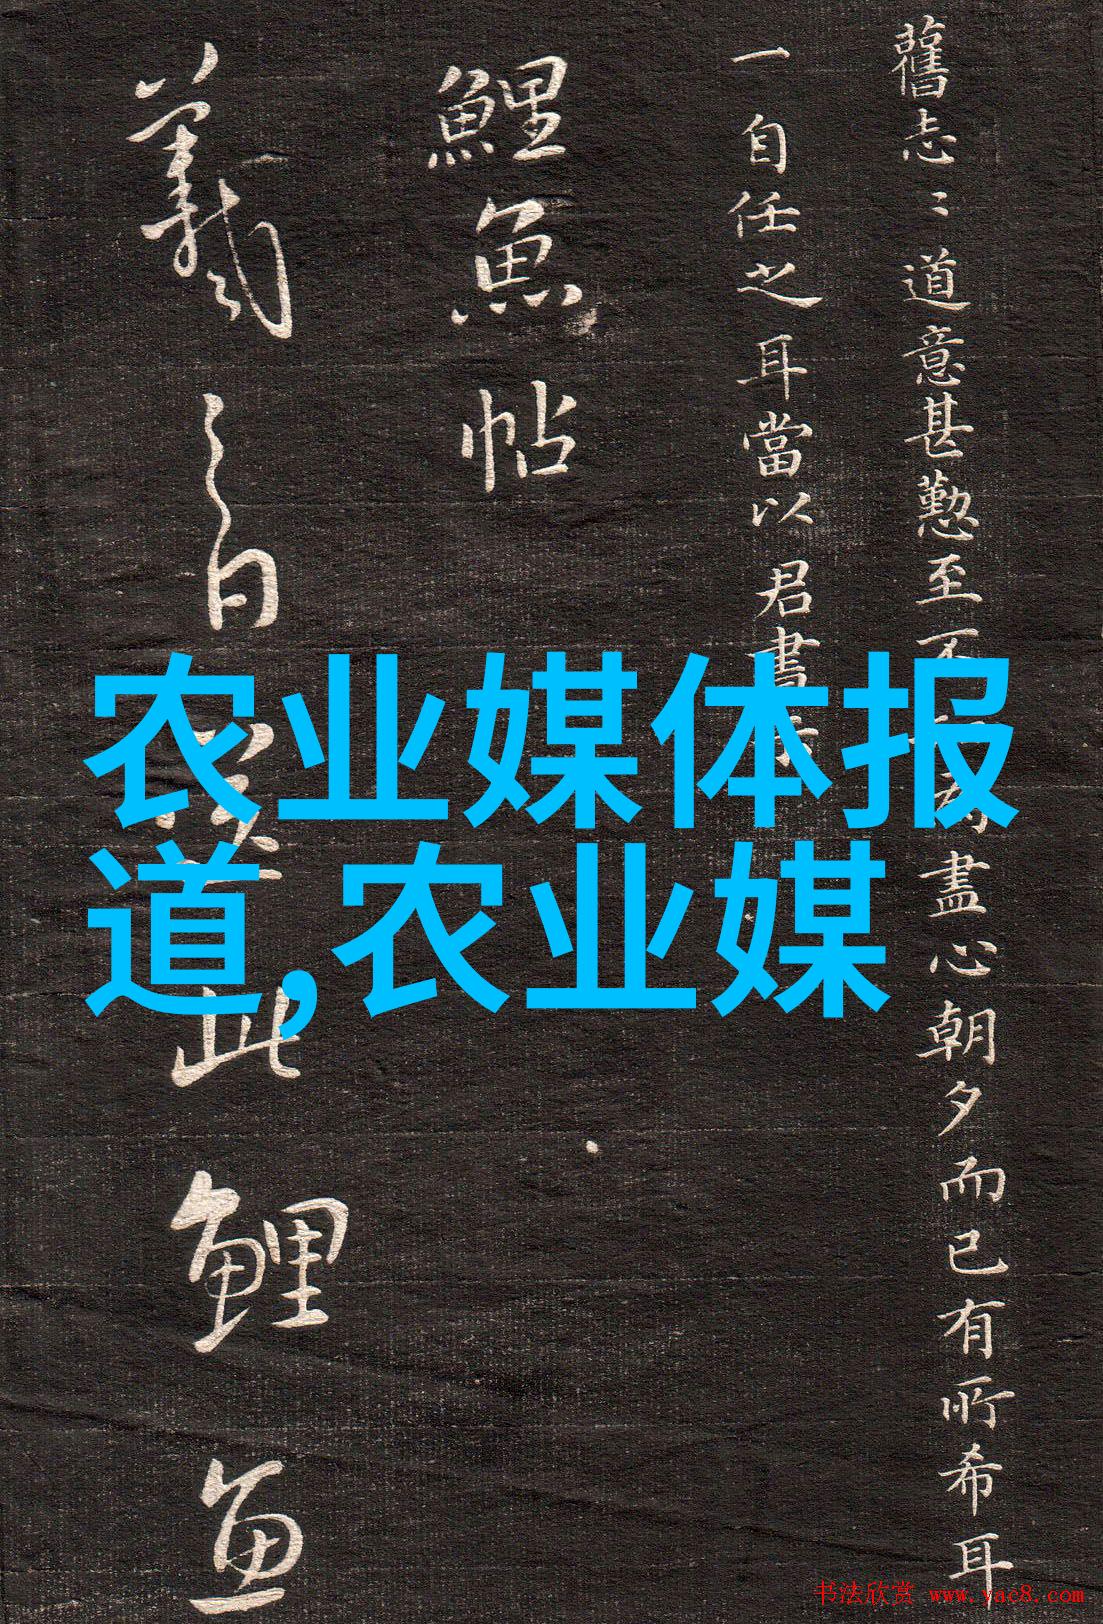 舊志〻道意甚懃至不
盡心朝夕而已有所希耳
一自任之耳當以君書
鯉魚帖
羲之白
此鯉魚
农业媒体报
道,农业媒
书法欣赏 www.yac8.com